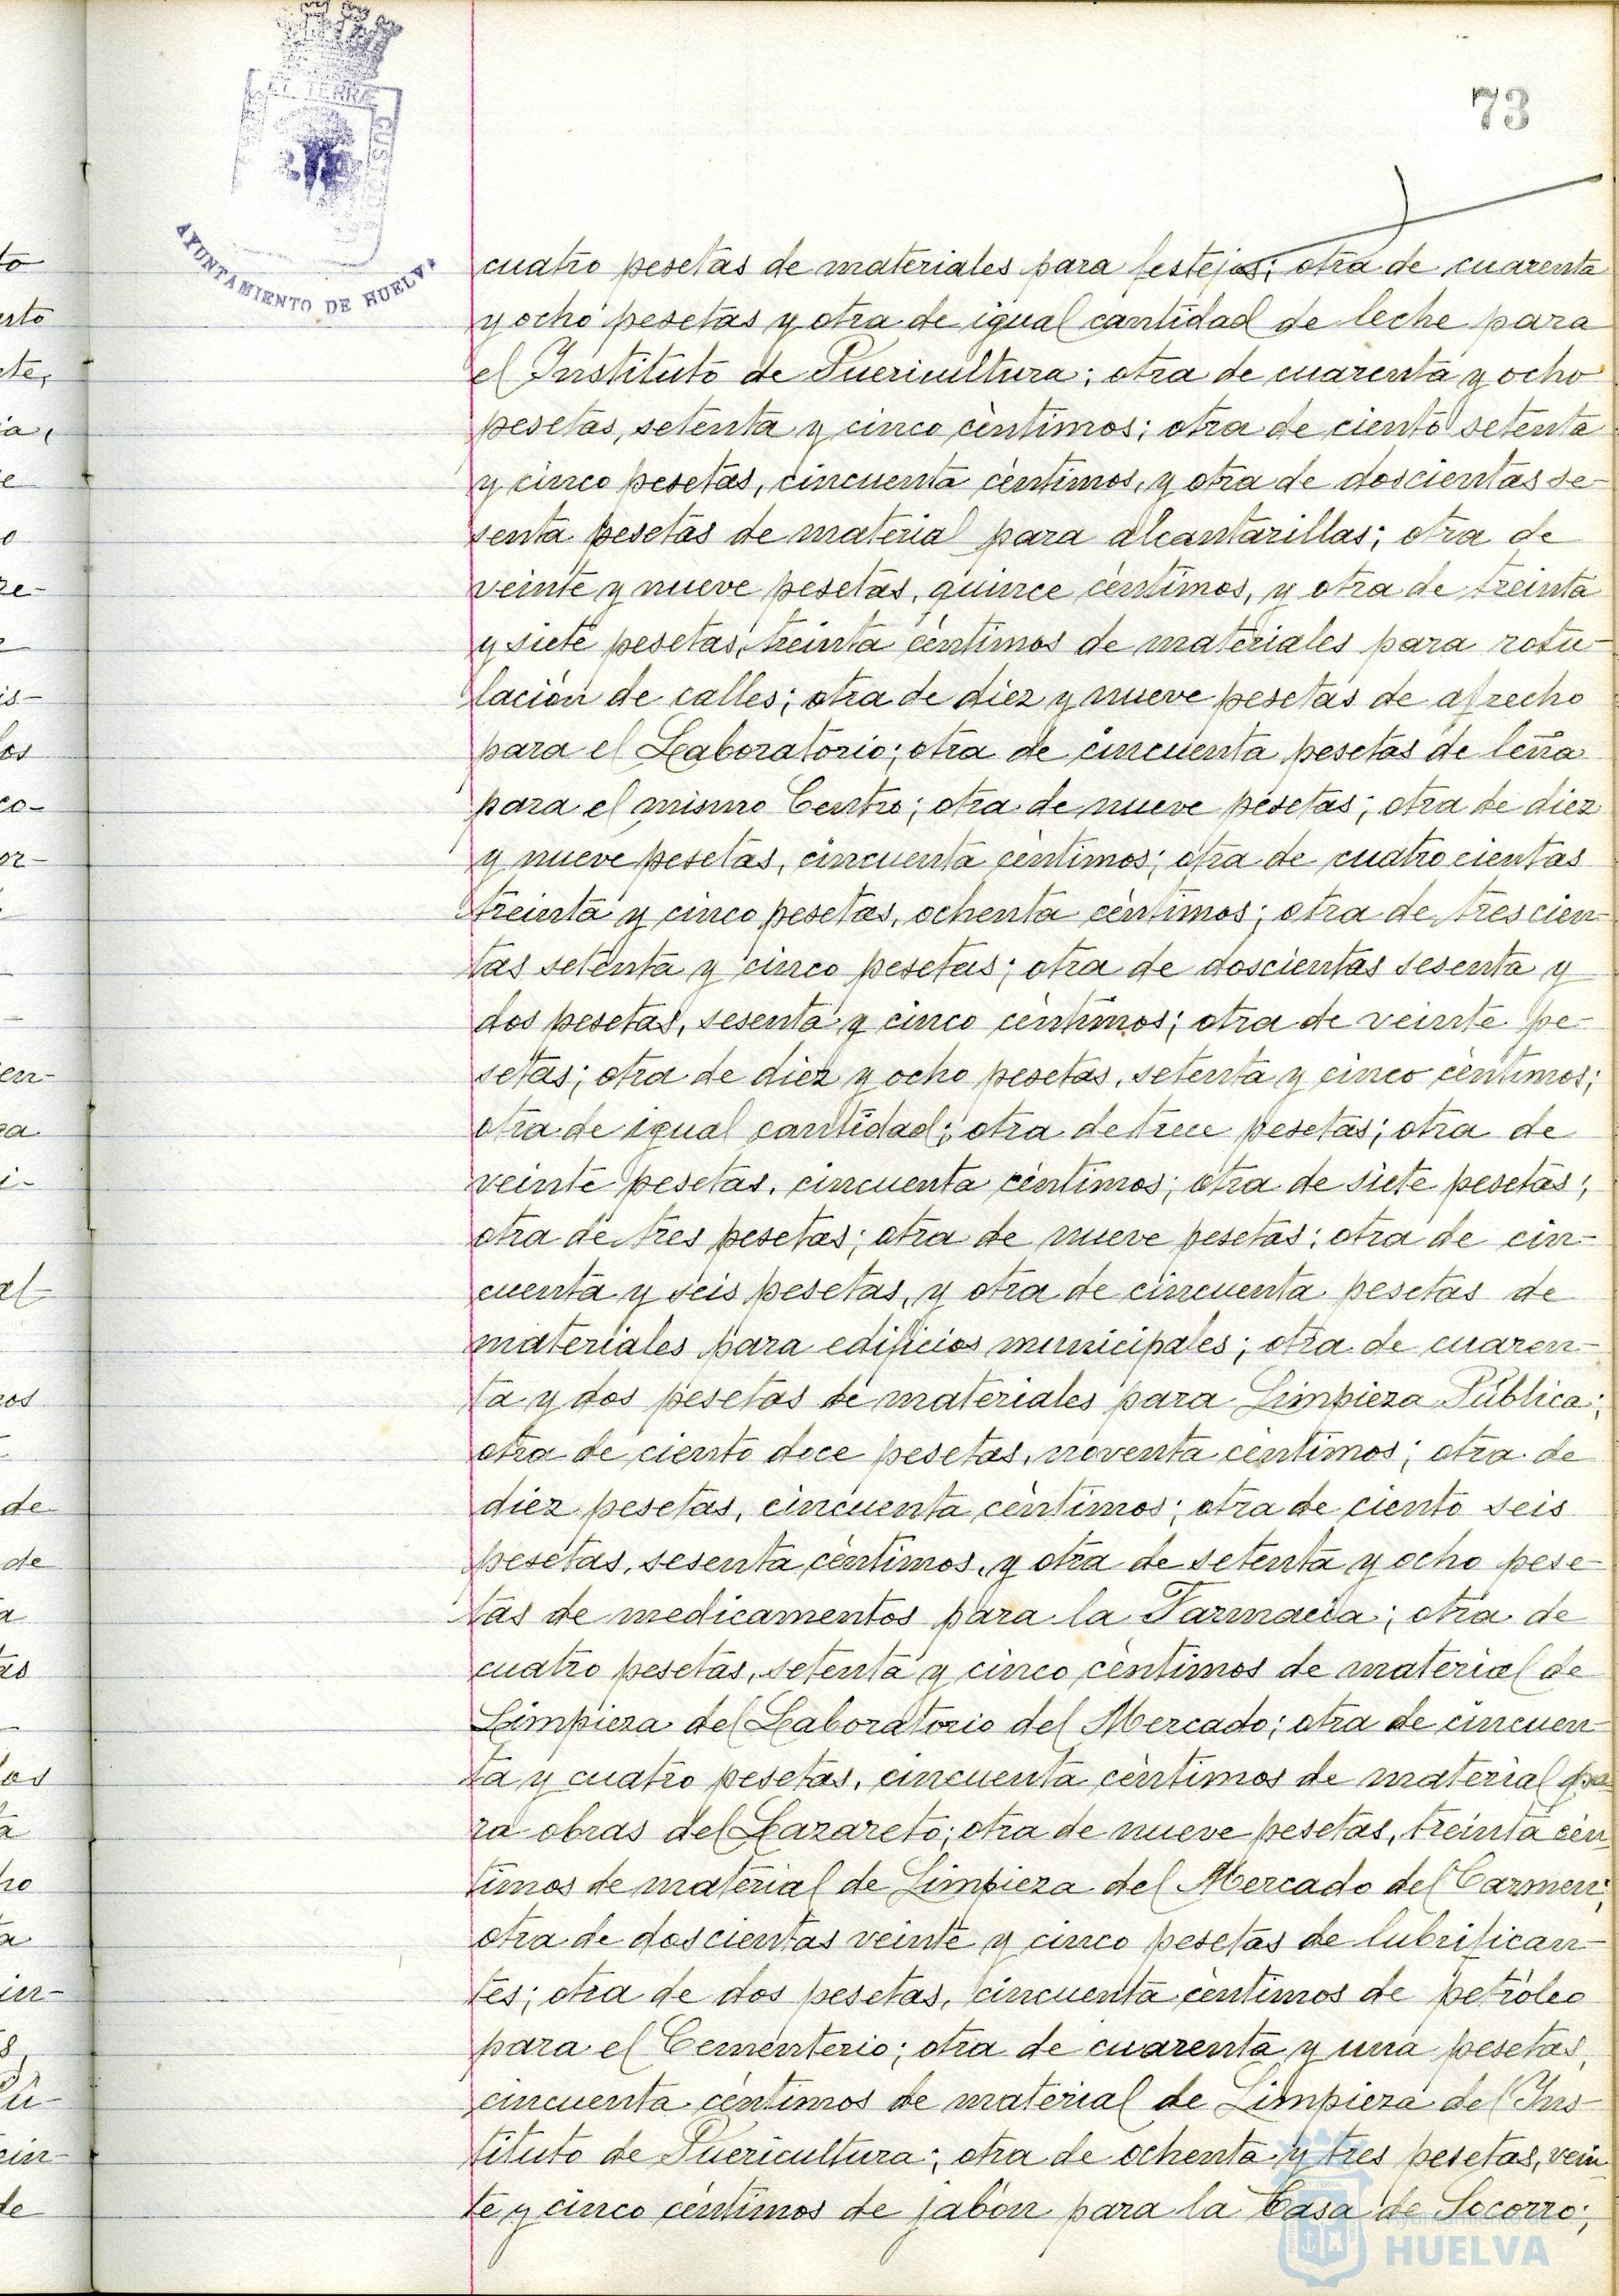 73
EL TERRÆ CUSTO
AYUNTAMIENTO DE HUELVA
cuatro pesetas de materiales para festejos; otra de cuarenta
y ocho pesetas y otra de igual cantidad de leche para
el Instituto de Puericultura; otra de cuarenta y ocho
pesetas, setenta y cinco céntimos; otra de ciento setenta
y cinco pesetas, cincuenta céntimos, y otra de doscientas se-
senta pesetas de material para alcantarillas; otra de
veinte y nueve pesetas, quince céntimos, y otra de treinta
y siete pesetas, treinta céntimos de materiales para rotu-
lación de calles; otra de diez y nueve pesetas de afrecho
para el Laboratorio; otra de cincuenta pesetas de leña
para el mismo Centro; otra de nueve pesetas; otra de diez
y nueve pesetas, cincuenta céntimos; otra de cuatrocientas
treinta y cinco pesetas, ochenta céntimos; otra de trescien-
tas setenta y cinco pesetas; otra de doscientas sesenta y
dos pesetas, sesenta y cinco céntimos; otra de veinte pe-
setas; otra de diez y ocho pesetas, setenta y cinco céntimos;
otra de igual cantidad; otra de trece pesetas; otra de
veinte pesetas, cincuenta céntimos; otra de siete pesetas;
otra de tres pesetas; otra de nueve pesetas; otra de cin-
cuenta y seis pesetas, y otra de cincuenta pesetas de
materiales para edificios municipales; otra de cuaren-
ta y dos pesetas de materiales para Limpieza Pública;
otra de ciento doce pesetas, noventa céntimos; otra de
diez pesetas, cincuenta céntimos; otra de ciento seis
pesetas, sesenta céntimos, y otra de setenta y ocho pese-
tas de medicamentos para la Farmacia; otra de
cuatro pesetas, setenta y cinco céntimos de material de
Limpieza del Laboratorio del Mercado; otra de cincuen-
ta y cuatro pesetas, cincuenta céntimos de material pa
ra obras del Lazareto; otra de nueve pesetas, treinta cén
timos de material de Limpieza del Mercado del Carmen;
otra de doscientas veinte y cinco pesetas de lubrifican-
tes; otra de dos pesetas, cincuenta céntimos de petróleo
para el Cementerio; otra de cuarenta y una pesetas,
cincuenta céntimos de material de Limpieza del Ins-
tituto de Puericultura; otra de ochenta y tres pesetas, vein
te y cinco céntimos de jabón para la Casa de Socorro;
Ayuntamiento de
HUELVA